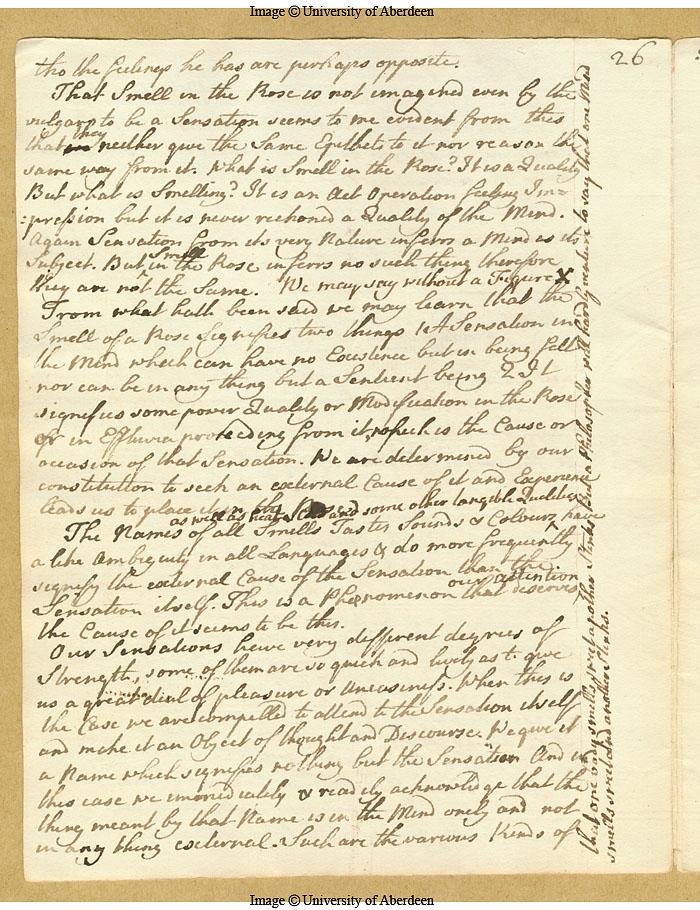 Image © University of Aberdeen
26
tho the feelings he has are perhaps opposite.
That Smell in the Rose is not imagined even by the
vulgar to be a Sensation seems to me evident from this
that they neither give the Same Epithets to it nor reason the
same way from it. What is Smell in the Rose? It is a Quality
But what is Smelling? It is an Act Operation feeling Im=
:pression but it is never reckoned a Quality of the Mind.
Again Sensation from its very Nature inferrs a Mind as its
Subject. But Smell in the Rose inferrs no such thing therefore
they are not the Same. We may say without a Figure X
From what hath been said we may learn that the
Smell of a Rose Signifies two things 1 A Sensation in
the Mind which can have no Existence but in being felt
nor can be in any thing but a Sentient being 2 It
signifies some power Quality or Modification in the Rose
or in Effluvia proceeding from it, which is the Cause or
occasion of that Sensation. We are determined by our
constitution to seek an external Cause of it and Experience
leads us to place it in the Rose
as well as heat & Cold and some other tangible Qualities
The Names of all Smells Tastes Sounds & Colours, have
a like Ambiguity in all Languages & do more frequently
signify the external Cause of the Sensation than the
Sensation itself. This is a Phænomenon that deserves our attention
the Cause of it seems to be this.
Our Sensations have very different degrees of
Strength, some of them are so quick and lively as to give
us a great deal of pleasure or Uneasiness. When this is
the Case we are compelled to attend to the Sensation itself
and make it an Object of thought and Discourse. We give it
a Name which signifies nothing but the Sensation And in
this case we immediately & readily acknowledge that the
thing meant by that Name is in the Mind onely and not
in any thing external. Such are the various Kinds of
that one body smells sweet another Stinks. But a Philosopher will hardly venture to say that one Mind
smells sweet and another Stinks.
Image © University of Aberdeen